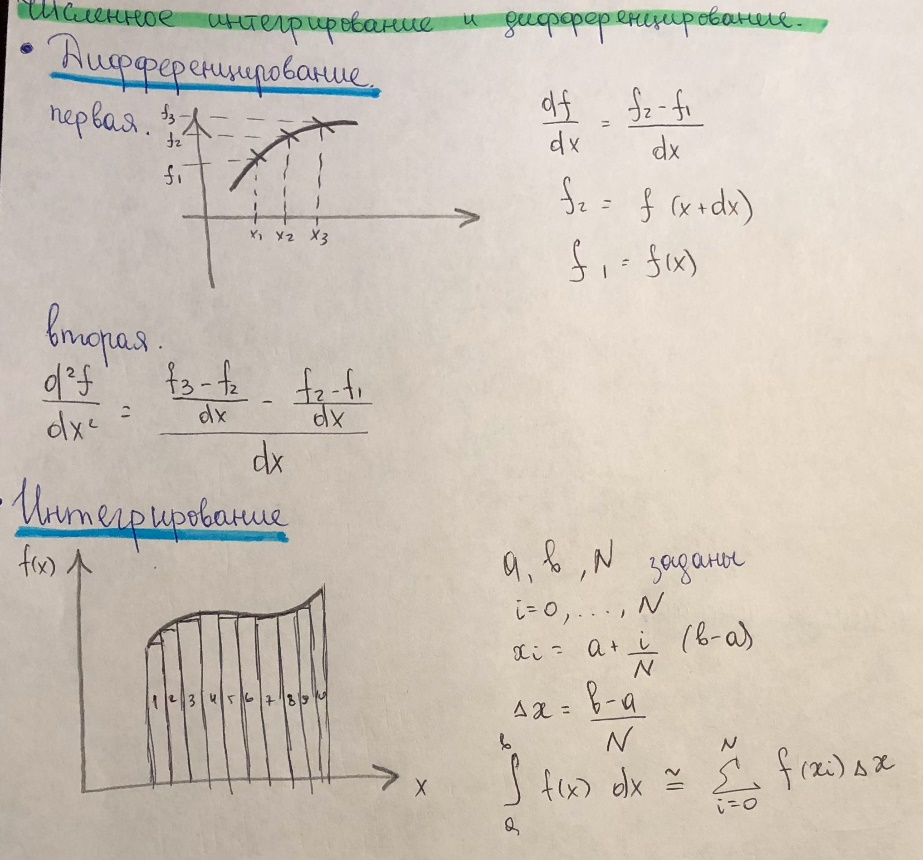 Численное интегрирование и дифференцирование.
• Дифференцирование.
первая.
f₃
f₂
f₁
x₁ x₂ x₃
df/dx = (f₂ - f₁)/dx
f₂ = f (x+dx)
f₁ = f(x)
вторая.
d²f/dx² = ((f₃ - f₂)/dx - (f₂ - f₁)/dx)/dx
• Интегрирование
f(x)
1 2 3 4 5 6 7 8 9
x
a, b, N заданы
i=0, ..., N
xi = a + i/N (b-a)
Δx = (b-a)/N
∫ₐᵇ f(x) dx ≅ Σᵢ₌₀ᴺ f(xi) Δx